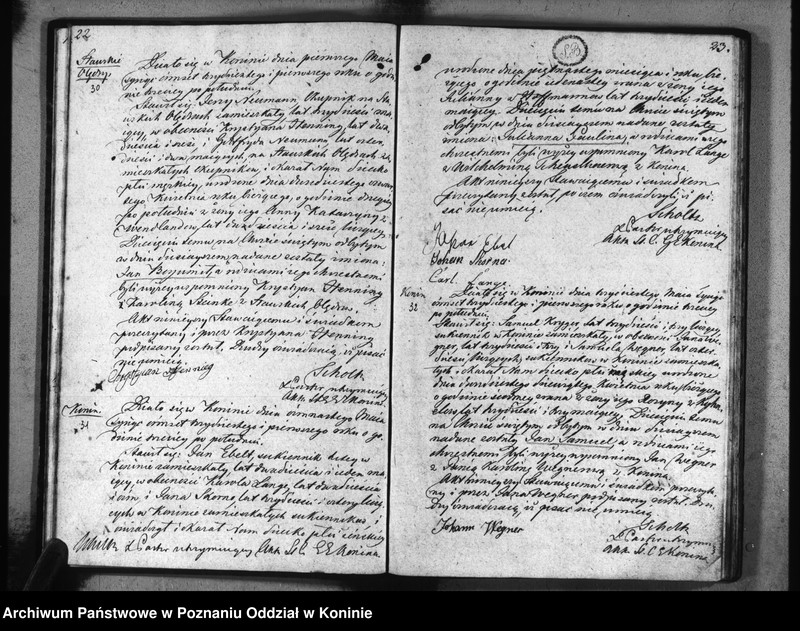 22
Stawskie
Olędry.
30
Działo się w Koninie dnia pierwszego Maia
tysiąc ośmset trzydziestego pierwszego roku o godzi-
nie trzeciey po południu
Stawił się Jerzy Neumann Okupnik na Sta-
wskich Olędrach zamieszkały, lat trzydzieści ma-
iący, w obecności Krystyana Henning, lat dwa-
dzieścia i sześć, i Gottfryda Neumann, lat ośm-
dzieści i dwa maiących, na Stawskich Olędrach za-
mieszkałych Okupników, i okazał Nam Dziecko
płci męzkiey, urodzone dnia dwudziestego
Kwietnia roku bieżącego, o godzinie drugiey
po południu z żony iego Anny Katarzyny z
Wendlandów, lat dwadzieścia i sześć liczącey.
Dziecięciu temu na Chrzcie świętym odbytym
w dniu dzisieyszym, nadane zostały imiona:
Jan Bogumił, a rodzicami iego chrzestnemi
byli wyżey wspomniony Krystyan Henning
z Karoliną z Stawskich Olędrów.
Akt ninieyszy Stawaiącemu i świadkom
przeczytany i przez Krystyana Henning
podpisany został. Drudzy oświadczyli, iż pisać
nie umieią.
Krystyan Henning
Scholtz
X Pastor utrzymuiący
Akta St. C. G. E. Konina
Konin.
31
Działo się w Koninie dnia ośmnastego Maia
tysiąc ośmset trzydziestego i pierwszego roku o go-
dzinie trzeciey po południu.
Stawił się Jan Ebelt, sukiennik tutey w
Koninie zamieszkały, lat dwadzieścia i ieden ma-
iący, w obecności Karola Lange, lat dwadzieścia
i Jana Skorna, lat trzydzieści i cztery liczą-
cych w Koninie zamieszkałych sukienników i
oświadczył i okazał Nam Dziecko płci żeńskiey
Scholtz X Pastor utrzymuiący Akta St. C. G. E. Konina
23.
urodzone dnia piętnastego miesiąca i roku bie-
żącego o godzinie iedenastey zrana z żony iego
Julianny z Hoffmannów lat trzydzieści i ieden
maiącey. Dziecięciu temu na Chrzcie świętym
odbytym w dniu dzisieyszym nadane zostały
imiona: Julianna Paulina, a rodzicami iego
chrzestnemi byli wyżey wspomniony Karol Lange
z Wilhelminą z Konina.
Akt ninieyszy Stawaiącemu i świadkom
przeczytany został, poczem oświadczyli iż pi-
sać nie umieią.
Scholtz
X Pastor utrzymuiący
Akta St. C. G. E. Konina
Ebel
Johann Skorna
Carl Lange
Konin
32
Działo się w Koninie dnia trzydziestego Maia tysiąc
ośmset trzydziestego pierwszego roku o godzinie trzeciey
po południu.
Stawił się Samuel Kryger, lat trzydzieści i trzy liczący,
sukiennik w Koninie zamieszkały, w obecności Jana We-
gner, lat trzydzieści i trzy i Wegner, lat
liczących, sukienników w Koninie zamieszka-
łych i okazał Nam Dziecko płci męzkiey urodzone
dnia dwudziestego dziewiątego Kwietnia roku bieżącego
o godzinie siódmey zrana z żony iego
lat trzydzieści i trzy maiącey. Dziecięciu temu
na Chrzcie świętym odbytym w dniu dzisieyszym
nadane zostały Jan Samuel, a rodzicami iego
chrzestnemi byli wyżey wspomniony Jan Wegner
z Panną Karoliną Wegnerową z Konina.
Akt ninieyszy Stawaiącemu i świadkom przeczyta-
ny i przez Jana Wegner podpisany został. Dru-
dzy oświadczaią iż pisać nie umieią
Johann Wegner
Scholtz
X Pastor utrzymuiący
Akta St. C. G. E. Konina
Archiwum Państwowe w Poznaniu Oddział w Koninie